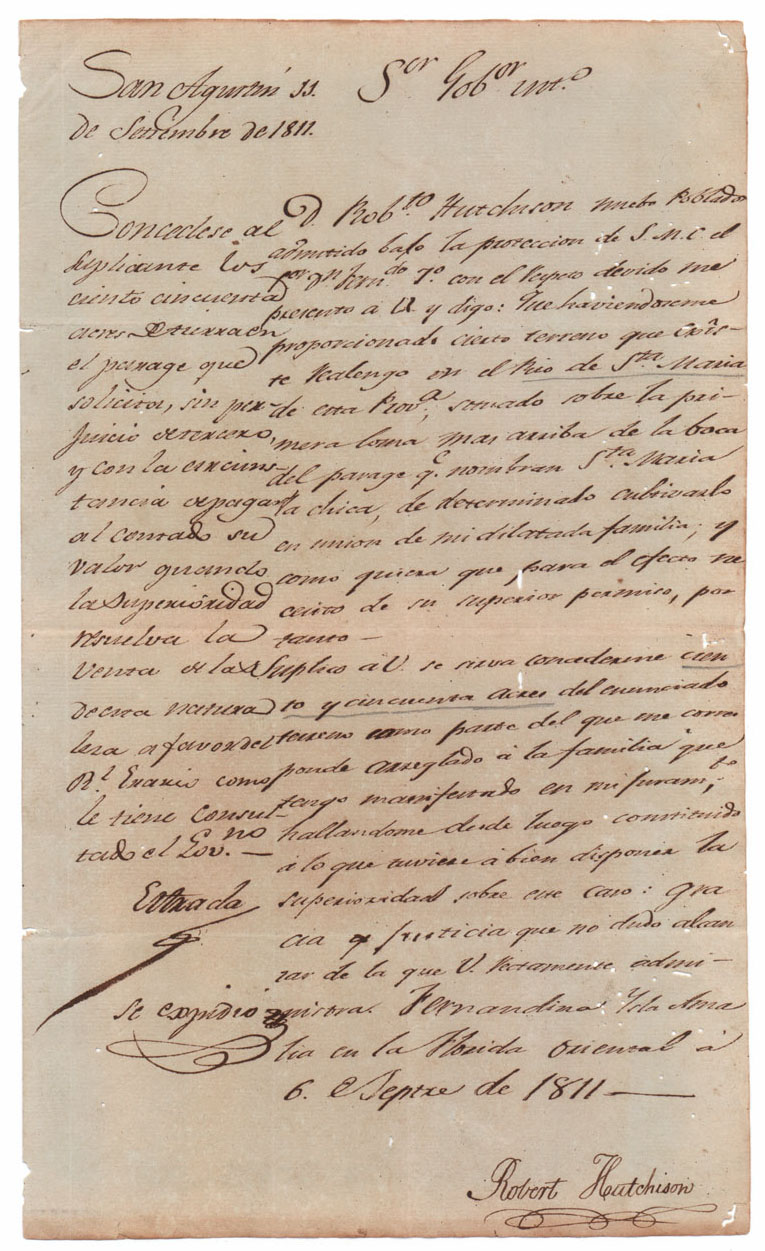 San Agustin 11
de Settembre de 1811.
Concedese al
suplicante los
ciento cincuenta
acres de tierra en
el parage que
solicita, sin per-
juicio de tercero,
y con la circuns-
tancia de pagar
al contado su
valor quando
la Superioridad
resuelva la
venta de las
de esta natura
leza a favor del
Rl. Erario como
le tiene consul-
tado el Gov.no
Estrada
se expidio
Sor. Gobor. intο.
D. Robto. Hutchison nuebo Poblador
admitido bajo la proteccion de S. M. C. el
por Dn. Ferndo. 7o. con el respeto devido me
presento a V. y digo: Que haviendoseme
proporcionado cierto terreno que exis-
te Realengo en el Rio de Sta Maria
de esta Prova., situado sobre la pri-
mera loma mas arriba de la boca
del parage qe. nombran Sta. Maria
la chica, he determinado cultivarlo
en union de mi dilatada familia; y
como quiera que, para el efecto ne
cesito de su superior permiso, por
tanto—
Suplico á V. se sirva concederme cien
to y cincuenta acres del enunciado
terreno como parte del que me corres
ponde arreglado á la familia que
tengo manifestado en mi juramto.
hallandome desde luego constituido
á lo que tuviere á bien disponer la
superioridad sobre este caso: gra
cia y justicia que no dudo alcan
zar de la que V. rectamente admi-
nistra. Fernandina Ysla Ama
lia en la Florida oriental á
6. Septre de 1811—
Robert Hutchison